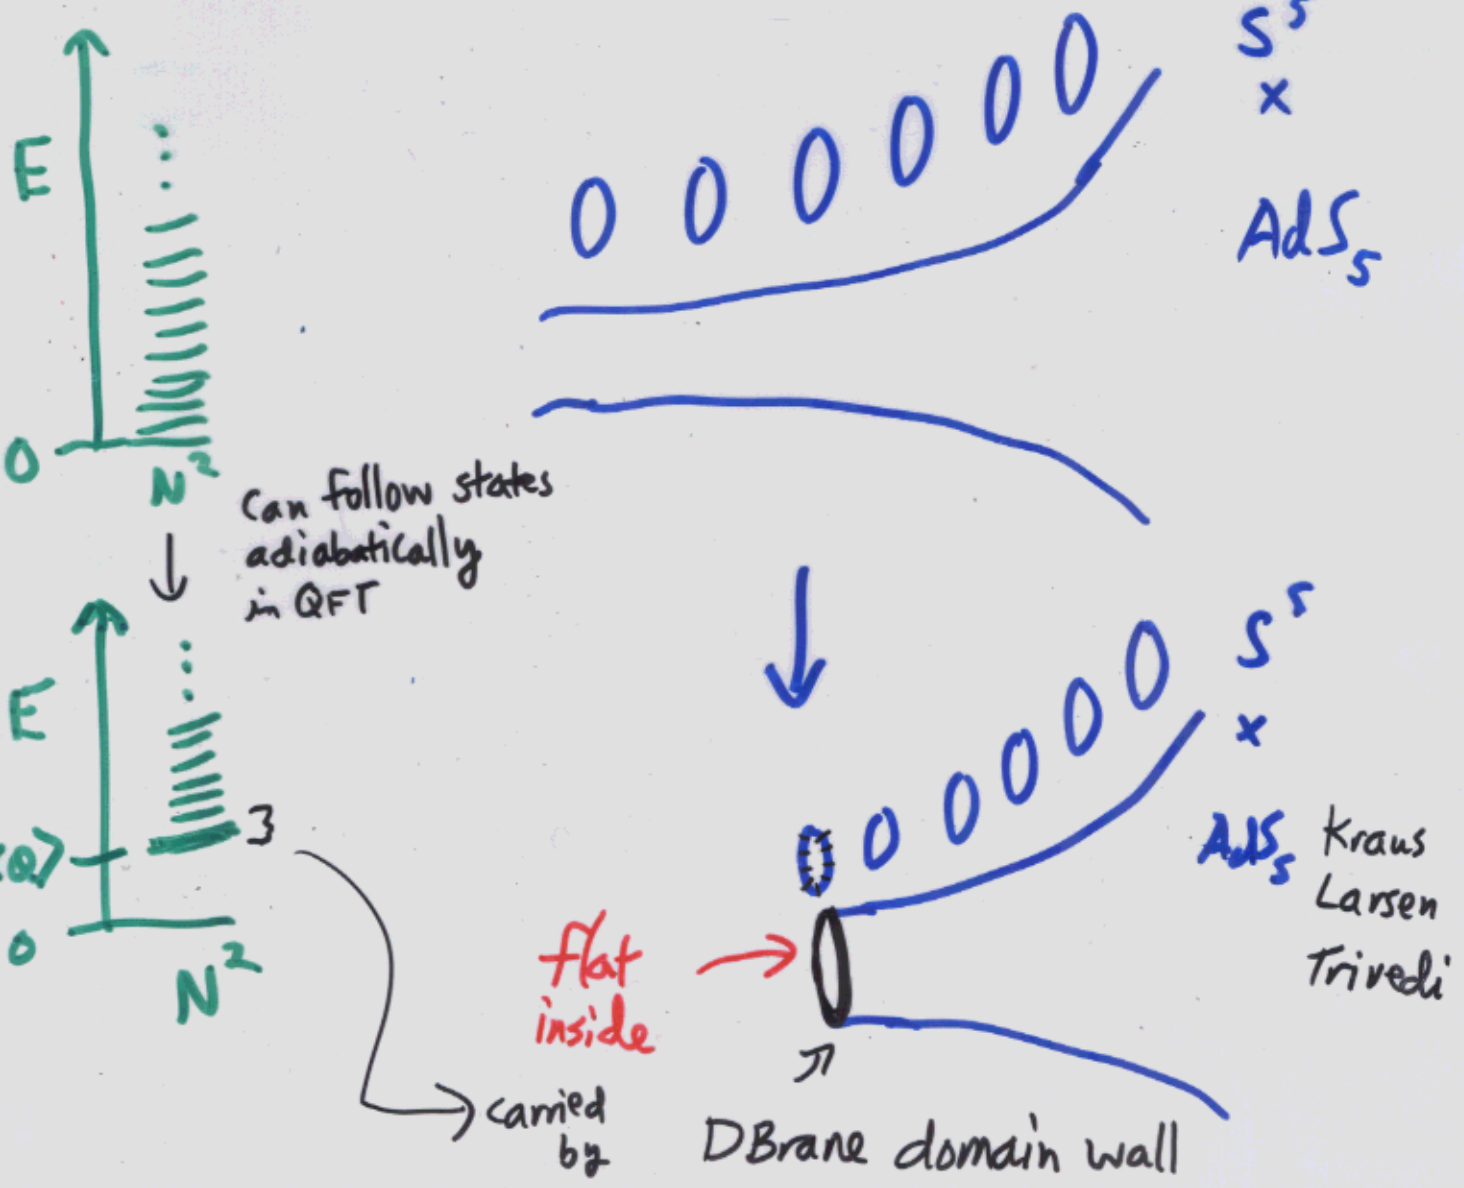 E
0
N²
S⁵
×
AdS₅
Can follow states
adiabatically
in QFT
E
⟨Q⟩
0
N²
S⁵
×
AdS₅
Kraus
Larsen
Trivedi
flat
inside
carried
by
DBrane domain wall